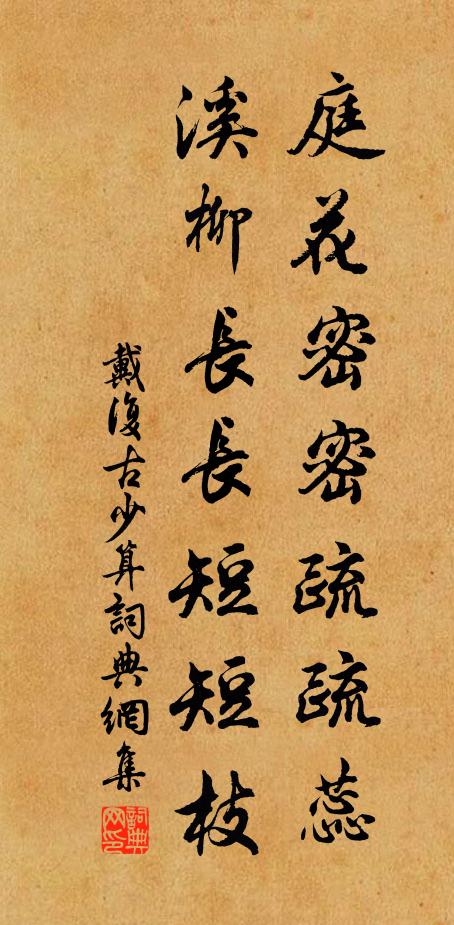 庭花密密疏疏蕊
溪柳長長短短枝
戴復古少算詞典網集
詞典网印